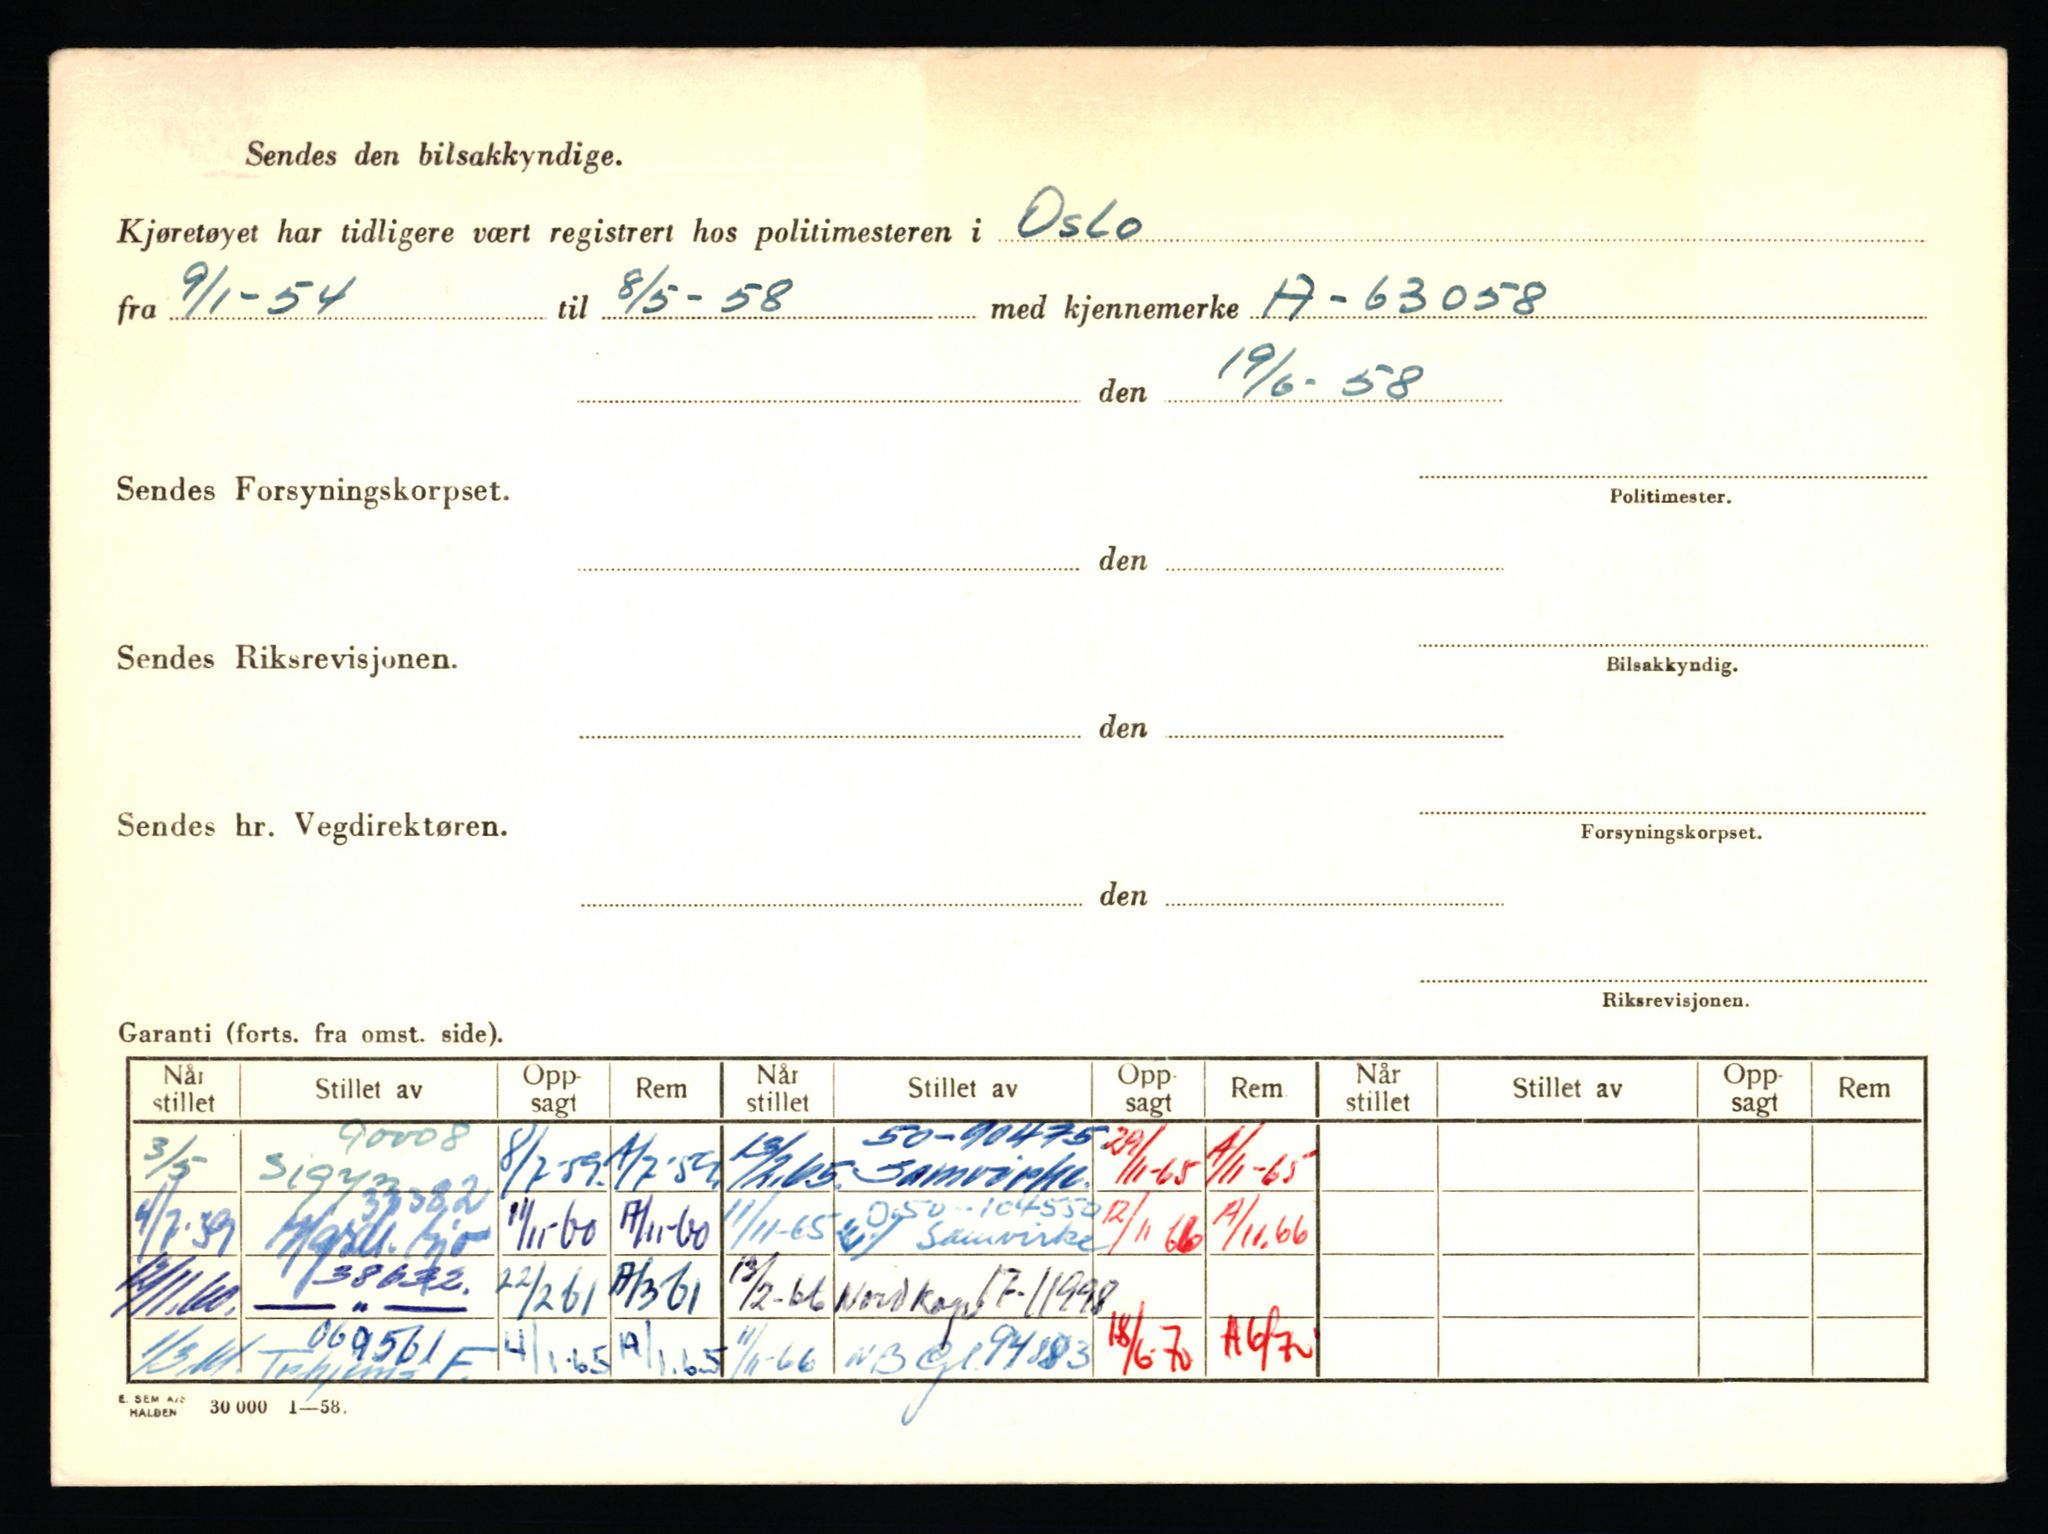 Sendes den bilsakkyndige.
Kjøretøyet har tidligere vært registrert hos politimesteren i Oslo
fra 9/1-54 til 8/5-58 med kjennemerke A-63058
den 19/6-58
Sendes Forsyningskorpset.
Politimester.
den
Sendes Riksrevisjonen.
Bilsakkyndig.
den
Sendes hr. Vegdirektøren.
Forsyningskorpset.
den
Riksrevisjonen.
Garanti (forts. fra omst. side).
Når stillet Stillet av Oppsagt Rem Når stillet Stillet av Oppsagt Rem Når stillet Stillet av Oppsagt Rem
90008 50-90475
3/5 Sigyn 8/7-59. A/7-59. 13/2.65. Samvirke. 29/11-65 A/11-65
33382 050-104550
4/7-59 11/11-60 A/11-60 11/11-65 Samvirke 12/11 66 A/11.66
38632.
11.60. — " — 22/2 61 A/3 61 13/2-66 17-11998
069561
1/3.61. F. 4/1-65 A/1.65 11/11-66 NB Gj. 94883 18/6-70 A 6/70
E. SEM A/S
HALDEN 30 000 1—58.